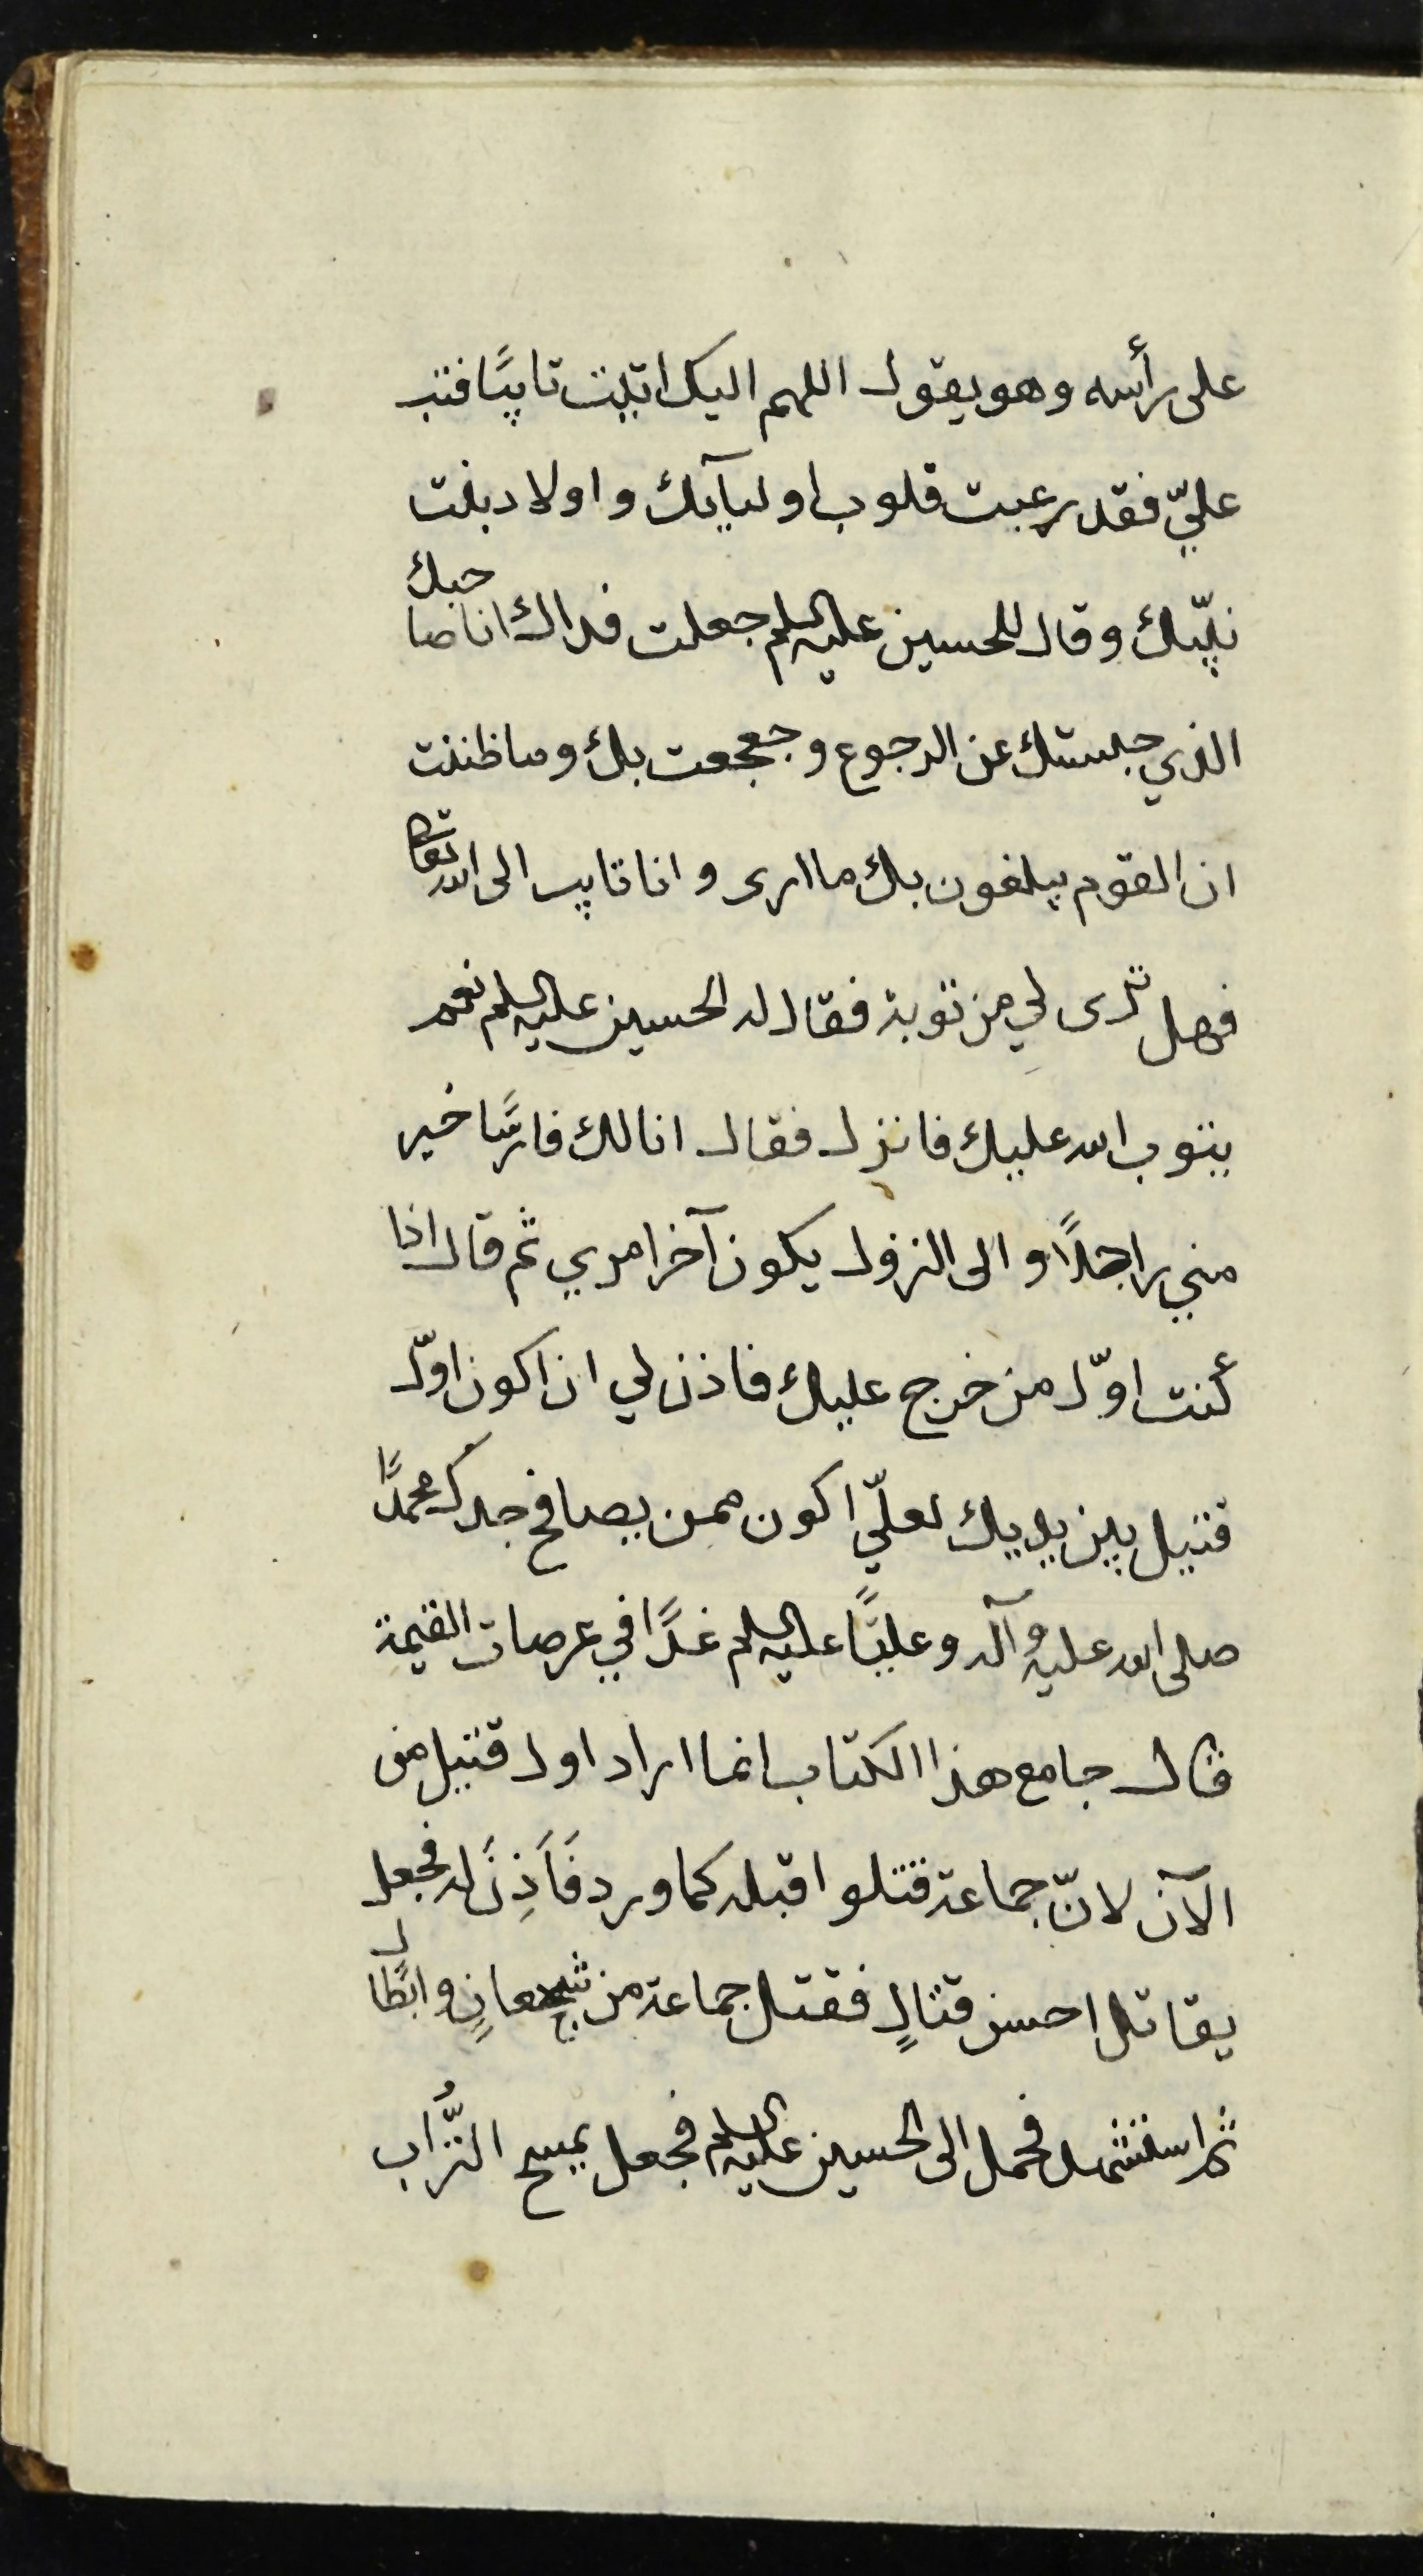 على رأسه وهو يقول اللهم اليك اتيت تايبًا فتب
عليّ فقد رعبت قلوب اوليآيك واولاد بنت
نبيّك وقال للحسين عليه السلم جعلت فداك انا صاحبك
الذي حبستك عن الرجوع وجعجعت بك وما ظننت
ان القوم يبلغون بك ما ارى وانا تايب الى الله تعالى
فهل ترى لي من توبة فقال له الحسين عليه السلم نعم
يتوب الله عليك فانزل فقال انا لك فارسًا خير
مني راجلًا والى النزول يكون آخر امري ثم قال اذا
كنت اوّل من خرج عليك فاذن لي ان اكون اوّل
قتيل بين يديك لعلّي اكون ممن يصافح جدك محمدًا
صلى الله عليه وآله وعليًّا عليه السلم غدًا في عرصات القيمة
قال جامع هذا الكتاب انما اراد اول قتيل من
الآن لانّ جماعة قتلوا قبله كما ورد فَاَذِنَ له فجعل
يقاتل احسن قتالٍ فقتل جماعة من شجعانٍ وابطال
ثم استشهد فحمل الى الحسين عليه السلم فجعل يمسح التُّراب